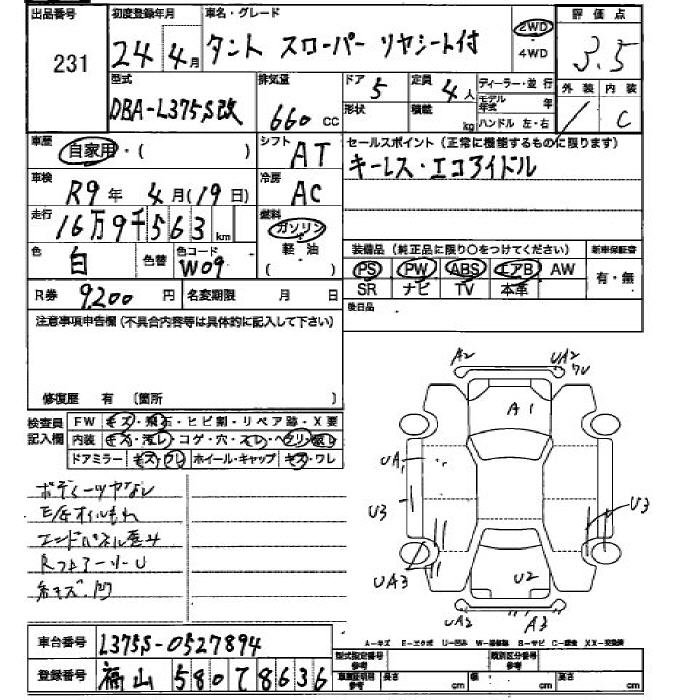 出品番号 初度登録年月 車名・グレード 評価点
231 24年4月 タント スローパー リヤシート付 2WD 4WD 3.5
型式 排気量 ドア 定員 ディーラー・並行 外装 内装
DBA-L375S改 660 CC 5 4人 モデル年式 年 C
形状 積載 kg ハンドル 左・右
車歴 自家用・( ) シフト AT セールスポイント(正常に機能するものに限ります)
キーレス・エコアイドル
車検 R9年 4月(19日) 冷房 AC
走行 16万9千563 km 燃料 ガソリン 軽油 ( )
色 白 色替 色コード W09
装備品(純正品に限り○をつけてください) 新車保証書
PS PW ABS エアB AW 有・無
SR ナビ TV 本革
R券 9200円 名変期限 月 日 後日品
注意事項申告欄(不具合内容等は具体的に記入して下さい)
修復歴 有 〔箇所 〕
検査員記入欄 FW キズ・飛石・ヒビ割・リペア跡・X要
内装 キズ・汚レ・コゲ・穴・スレ・ヘタリ・
ドアミラー キズ・ワレ ホイール・キャップ キズ・ワレ
ボディーツヤなし
E/Gオイルもれ
エンドパネル歪み
A2 UA2 ワレ
A1
UA1
U3 U3
UA3 U2
UA2 A3
A-キズ E-エクボ U-凹み
車台番号 L375S-0527894
登録番号 福山 580 て 8636
型式指定番号 参考 類別区分番号 参考
車庫証明用 参考 長さ cm 幅 cm 高さ cm